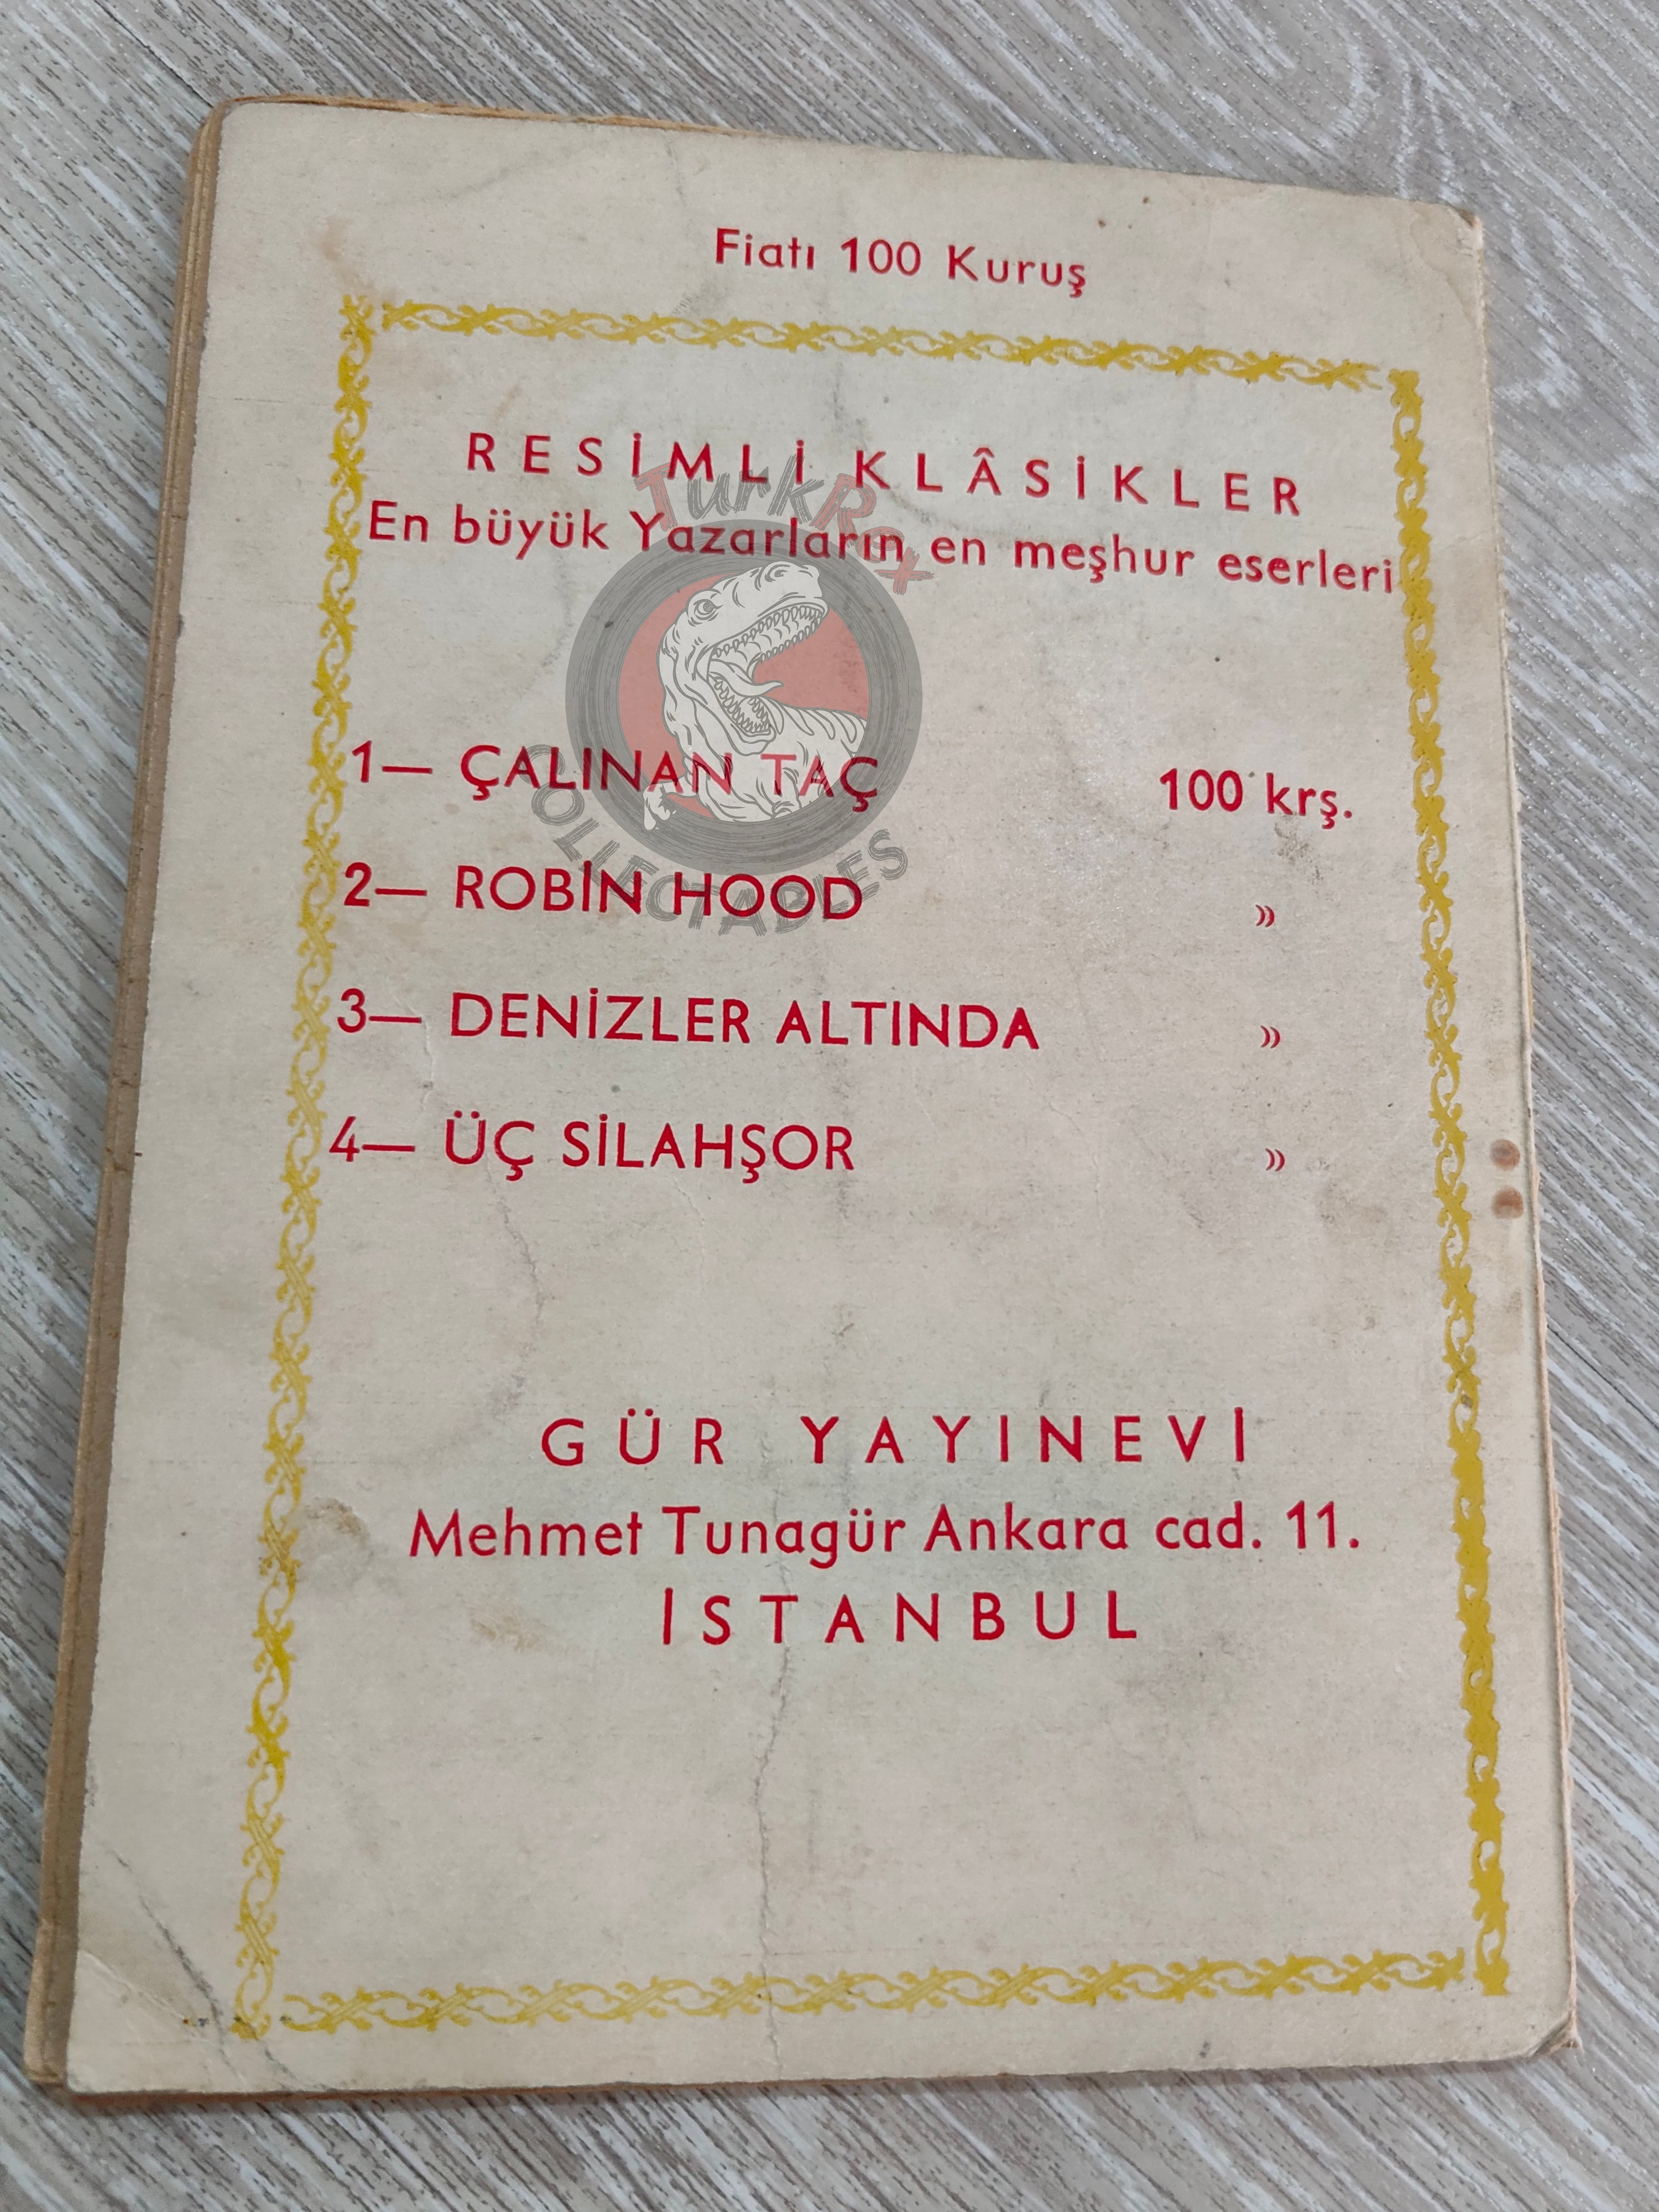 Fiatı 100 Kuruş
RESİMLİ KLÂSİKLER
En büyük Yazarların en meşhur eserleri
TurkRex
COLLECTABLES
1— ÇALINAN TAÇ 100 krş.
2— ROBİN HOOD »
3— DENİZLER ALTINDA »
4— ÜÇ SİLAHŞOR »
GÜR YAYINEVİ
Mehmet Tunagür Ankara cad. 11.
İSTANBUL